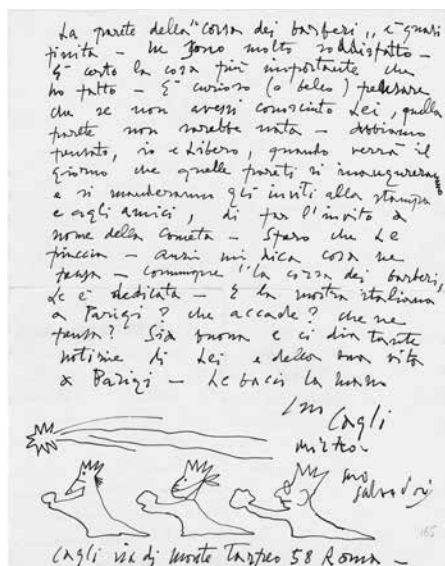 La parete della "corsa dei barberi" è quasi
finita – Ne sono molto soddisfatto –
È certo la cosa più importante che
ho fatto – È curioso (o bello) pensare
che se non avessi conosciuto Lei, quella
parete non sarebbe nata – Abbiamo
pensato, io e Libero, quando verrà il
giorno che quelle pareti si inaugureranno
e si manderanno gli inviti alla stampa
e agli amici, di far l'invito a
nome della Cometa – Spero che Le
piaccia – anzi mi dica cosa ne
pensa – comunque "la corsa dei barberi"
Le è dedicata – E la mostra italiana
a Parigi? che accade? che ne
pensa? Sia buona e ci dia tante
notizie di Lei e della sua vita
a Parigi – Le bacio la mano
Cagli
mirko
suo
Cagli via di Monte Tarpeo 58 Roma –